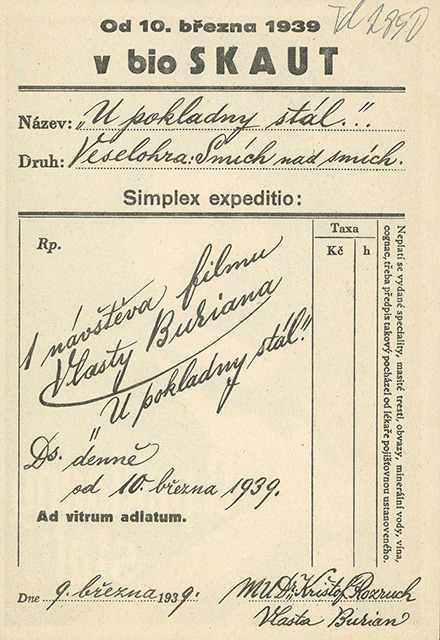 Od 10. března 1939
v bio SKAUT
Název: „U pokladny stál..."
Druh: Veselohra: Smích nad smích.
Simplex expeditio:
Rp.
Taxa
Kč h
1 návštěva filmu
Vlasty Buriana
„U pokladny stál."
Ds. denně
od 10. března 1939.
Ad vitrum adlatum.
Neplatí se vydané speciality, masité tresti, obvazy, minerální vody, vína,
cognac, třeba předpis takový pocházel od lékaře pojišťovnou ustanoveného.
Dne 9. března 1939.
MUDr. Krištof Rozruch
Vlasta Burian